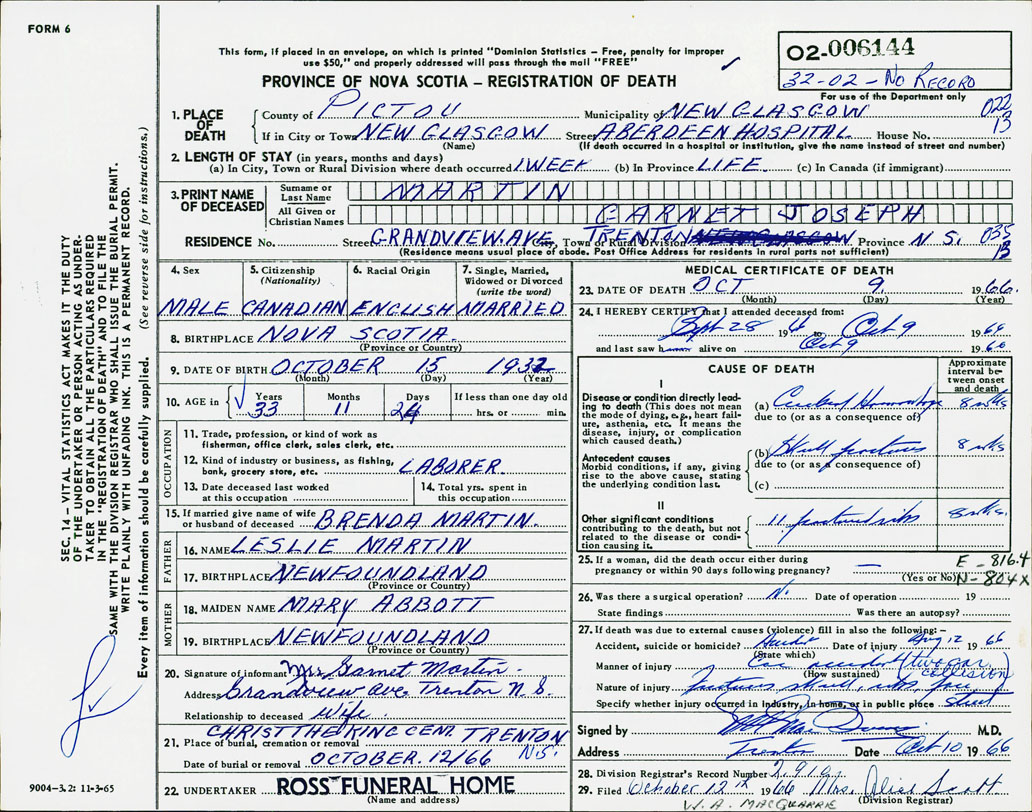 FORM 6
This form, if placed in an envelope, on which is printed "Dominion Statistics – Free, penalty for improper
use $50," and properly addressed will pass through the mail "FREE"
O2-006144
32-02 - NO RECORD
For use of the Department only
PROVINCE OF NOVA SCOTIA – REGISTRATION OF DEATH
1. PLACE OF DEATH
County of PICTOU Municipality of NEW GLASGOW 022
If in City or Town NEW GLASGOW Street ABERDEEN HOSPITAL House No. 13
(Name) (If death occurred in a hospital or institution, give the name instead of street and number)
2. LENGTH OF STAY (in years, months and days)
(a) In City, Town or Rural Division where death occurred 1 WEEK (b) In Province LIFE. (c) In Canada (if immigrant)
3. PRINT NAME OF DECEASED
Surname or Last Name MARTIN
All Given or Christian Names GARNET JOSEPH
RESIDENCE No. Street GRANDVIEW AVE City, Town or Rural Division TRENTON NEW GLASGOW Province N S. 035
(Residence means usual place of abode. Post Office Address for residents in rural parts not sufficient) 13
4. Sex
MALE
5. Citizenship
(Nationality)
CANADIAN
6. Racial Origin
ENGLISH
7. Single, Married,
Widowed or Divorced
(write the word)
MARRIED
8. BIRTHPLACE NOVA SCOTIA.
(Province or Country)
9. DATE OF BIRTH OCTOBER 15 1932
(Month) (Day) (Year)
10. AGE in Years Months Days If less than one day old
33 11 24 hrs. or min.
OCCUPATION
11. Trade, profession, or kind of work as
fisherman, office clerk, sales clerk, etc.
12. Kind of industry or business, as fishing,
bank, grocery store, etc. LABORER.
13. Date deceased last worked
at this occupation
14. Total yrs. spent in
this occupation
15. If married give name of wife
or husband of deceased BRENDA MARTIN.
FATHER
16. NAME LESLIE MARTIN
17. BIRTHPLACE NEWFOUNDLAND
(Province or Country)
MOTHER
18. MAIDEN NAME MARY ABBOTT
19. BIRTHPLACE NEWFOUNDLAND
(Province or Country)
20. Signature of informant Mrs Garnet Martin.
Address Grandview Ave. Trenton N S.
Relationship to deceased Wife.
21. Place of burial, cremation or removal CHRIST THE KING CEM. TRENTON N.S.
Date of burial or removal OCTOBER. 12/66
22. UNDERTAKER ROSS FUNERAL HOME
(Name and address)
MEDICAL CERTIFICATE OF DEATH
23. DATE OF DEATH OCT 9. 1966.
(Month) (Day) (Year)
24. I HEREBY CERTIFY that I attended deceased from:
Sept 28 196 to Oct 9 1966
and last saw h alive on Oct 9 1966
CAUSE OF DEATH
Approximate
interval be-
tween onset
and death
I
Disease or condition directly lead-
ing to death (This does not mean
the mode of dying, e.g., heart fail-
ure, asthenia, etc. It means the
disease, injury, or complication
which caused death.)
(a) Cerebral Hemorrhage 8 wks
due to (or as a consequence of)
Antecedent causes
Morbid conditions, if any, giving
rise to the above cause, stating
the underlying condition last.
(b) Skull fractures 8 wks
due to (or as a consequence of)
(c)
II
Other significant conditions
contributing to the death, but not
related to the disease or condi-
tion causing it.
11 fractured ribs 8 wks.
25. If a woman, did the death occur either during
pregnancy or within 90 days following pregnancy? — (Yes or No)
E - 816.4
N - 804X
26. Was there a surgical operation? No. Date of operation 19
State findings Was there an autopsy?
27. If death was due to external causes (violence) fill in also the following:–
Accident, suicide or homicide? Date of injury Aug 12 1966
(State which)
Manner of injury Car accident (two car collision)
(How sustained)
Nature of injury Fractures skull, ribs,
Specify whether injury occurred in industry, in home, or in public place Street
Signed by M.D.
Address Trenton Date Oct 10 1966
28. Division Registrar's Record Number 2910
29. Filed October 12th 1966 Mrs. Alice Scott
(Division Registrar)
W. A. MACQUARRIE
SEC. 14 – VITAL STATISTICS ACT MAKES IT THE DUTY
OF THE UNDERTAKER OR PERSON ACTING AS UNDER-
TAKER TO OBTAIN ALL THE PARTICULARS REQUIRED
IN THE "REGISTRATION OF DEATH" AND TO FILE THE
SAME WITH THE DIVISION REGISTRAR WHO SHALL ISSUE THE BURIAL PERMIT.
WRITE PLAINLY WITH UNFADING INK. THIS IS A PERMANENT RECORD.
Every item of information should be carefully supplied. (See reverse side for instructions.)
9004–3.2: 11-3-65